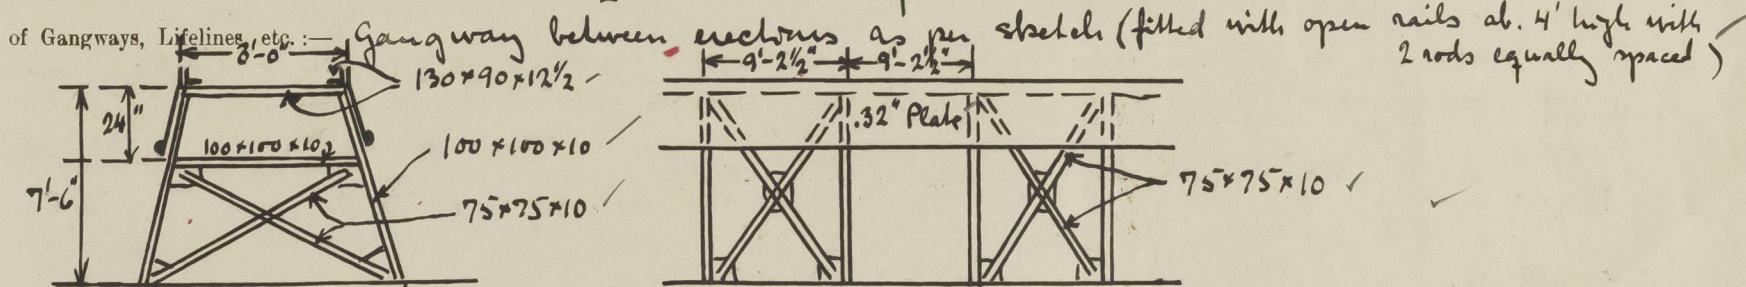 of Gangways, Lifelines, etc. :— Gangway between erections as per sketch (fitted with open rails ab. 4' high with
2 rods equally spaced)
3'-0"
9'-2½" 9'-2½"
130×90×12½
24"
.32" Plate
100×100×10
100×100×10
75×75×10
7'-6"
75×75×10